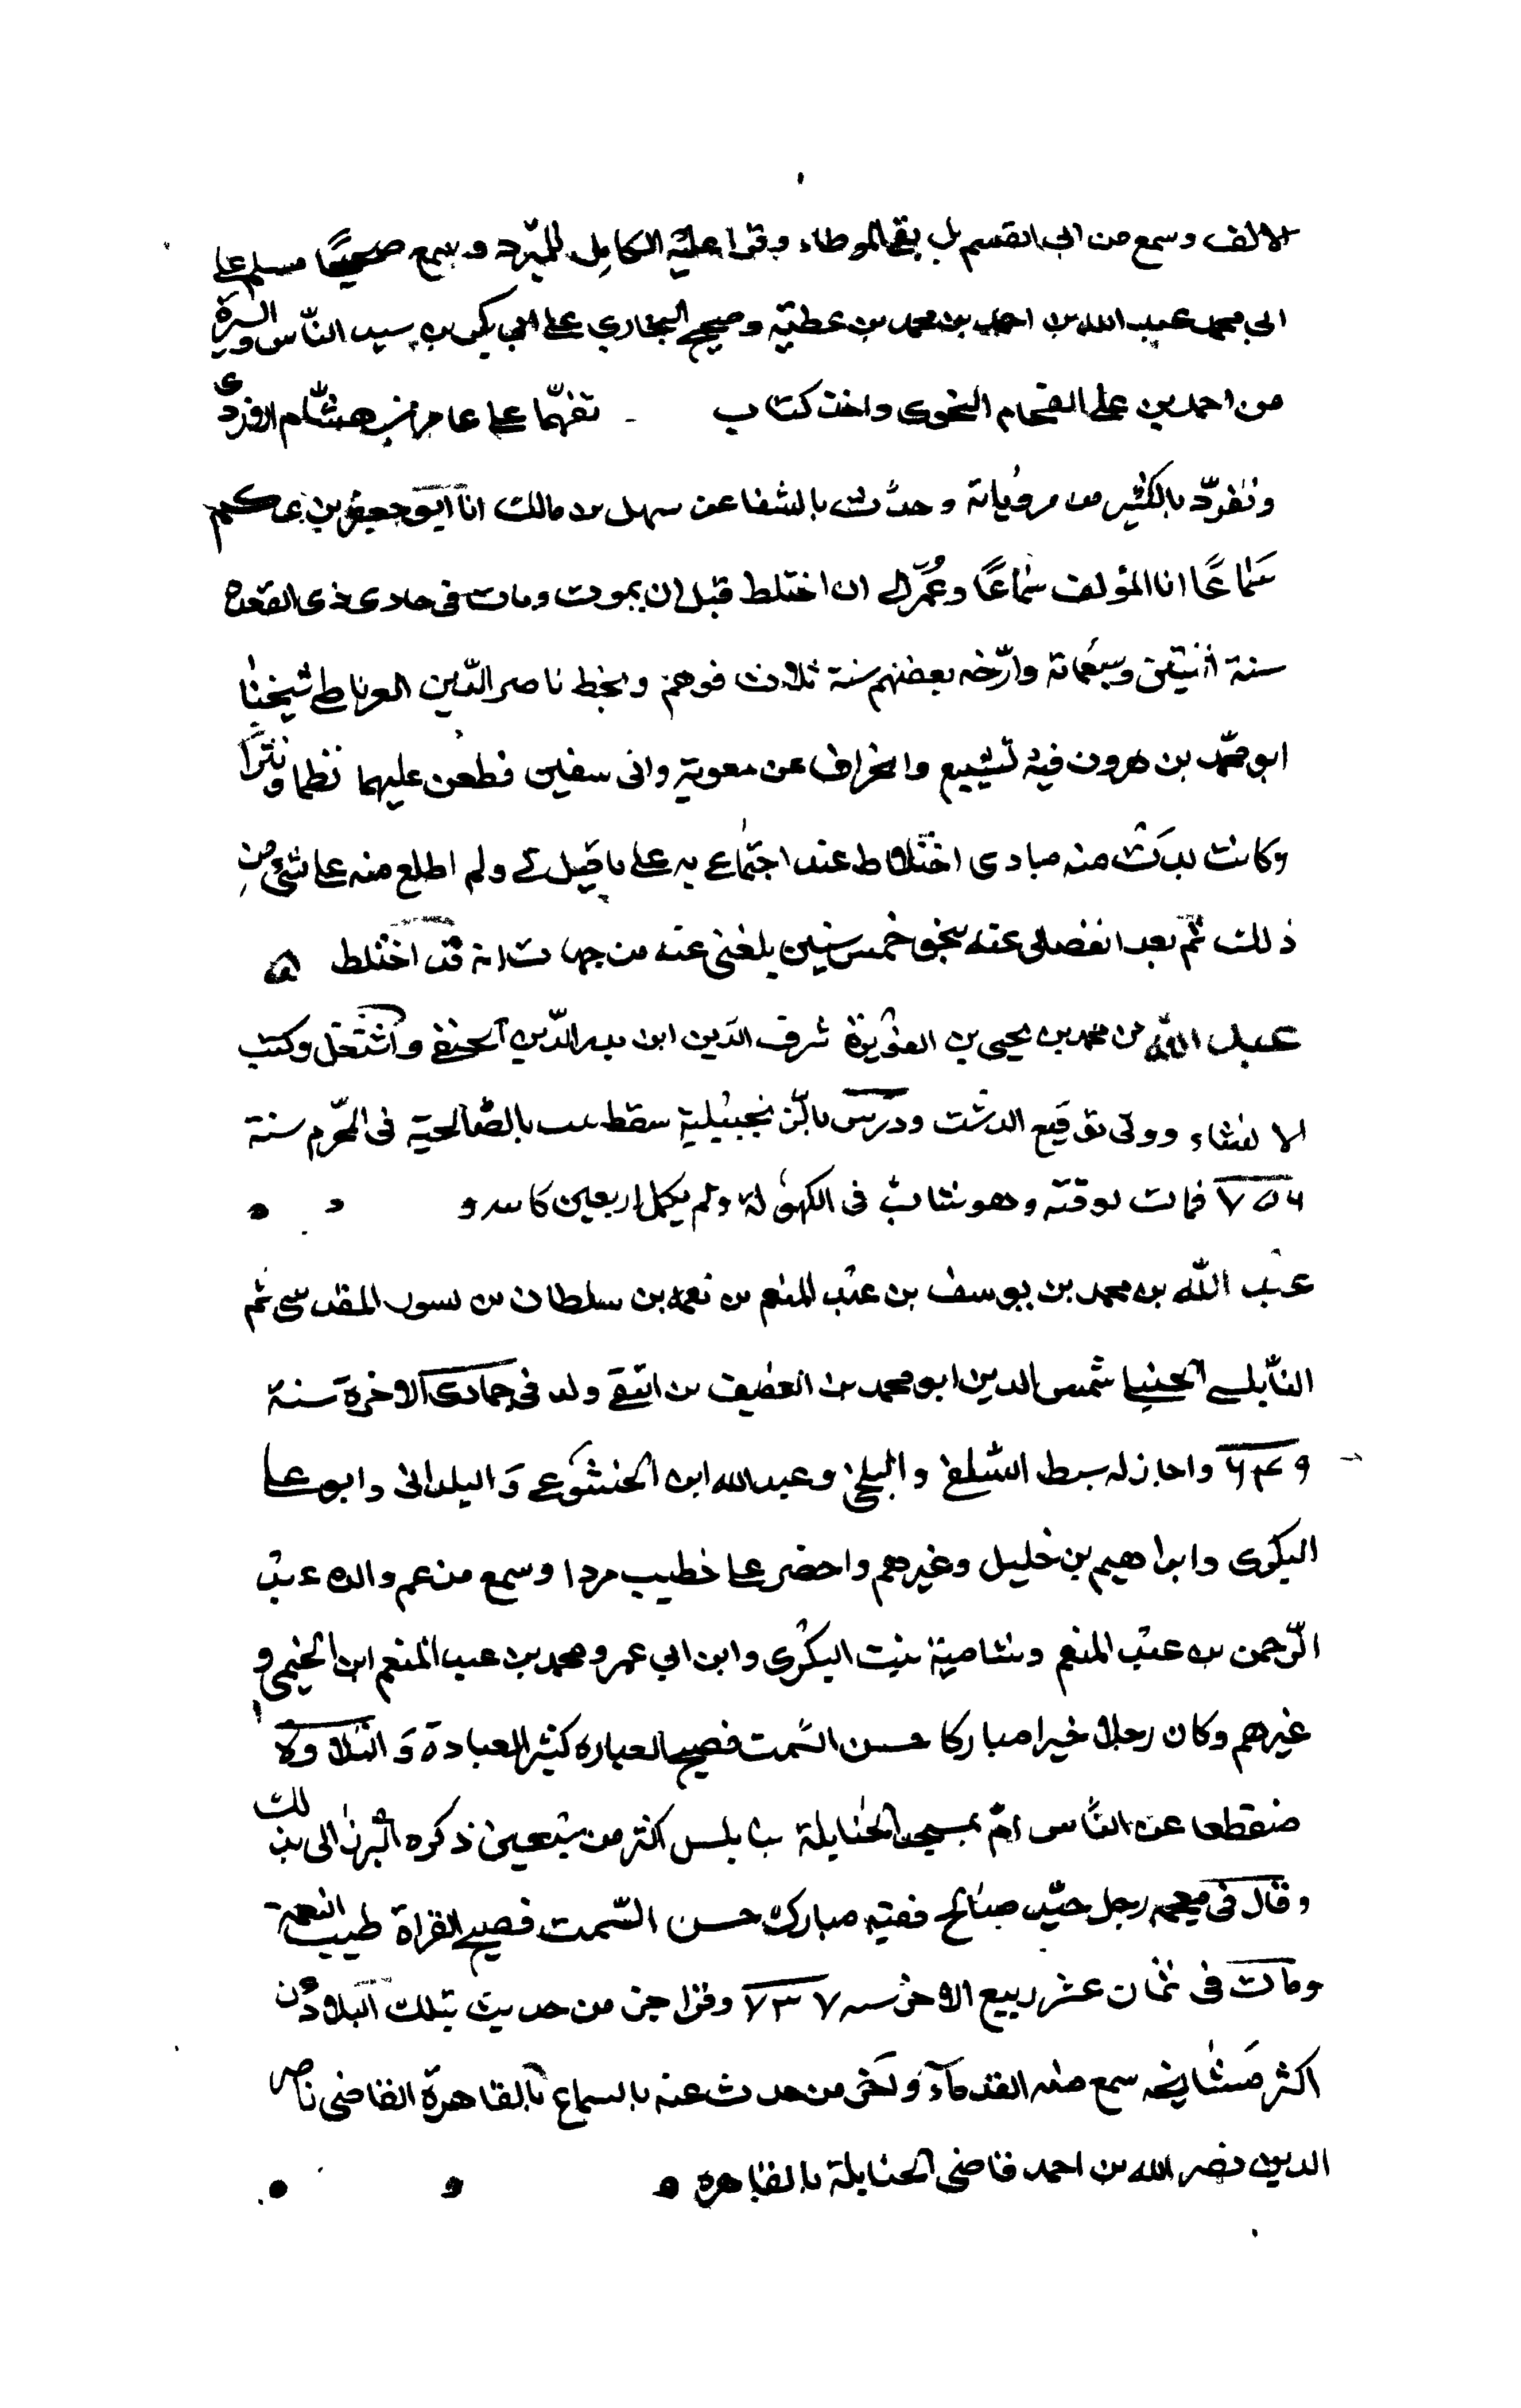 الالف وسمع من ابي القسم بن بقي الموطاء وقرا عليه الكامل للمبرد وسمع صحيح مسلم على
ابي محمد عبد الله بن احمد بن محمد بن عطية وصحيح البخاري على ابي بكر بن سيد الناس والسيرة
من احمد بن علي الفحام النحوى واخذ كتاب تفهما على عامر بن هشام الازدى
وتفرد بالكثير من مروياته وحدث بالشفا عن سهل بن مالك انا ابو جعفر بن حكم
سماعا انا المؤلف سماعا وعمر الى ان اختلط قبل ان يموت ومات فى حادى ذى القعده
سنة اثنتين وسبعمائة وارخه بعضهم سنة ثلاث فوهم وبخط ناصر الدين الغرناطي شيخنا
ابو محمد بن هرون فيه تشيع وانحراف عن معوية وابى سفين فطعن عليهما نظما ونثرا
وكانت بدت منه مبادى اختلاط عند اجتماعي به على ما قيل لي ولم اطلع منه على شئ من
ذلك ثم بعد انفصالى عنه بنحو خمس سنين بلغنى عنه من جهات انه قد اختلط
عبد الله بن محمد بن يحيى بن الفويرة شرف الدين ابن بدر الدين الحنفي واشتغل وكتب
الانشاء وولى توقيع الدست ودرس بالزنجبيلية سقط بالصالحية فى المحرم سنة
٧٥٦ فمات لوقته وهو شاب فى الكهولة ولم يكمل اربعين
عبد الله بن محمد بن يوسف بن عبد المنعم بن نعمة بن سلطان بن سرور المقدسى ثم
النابلسي الحنبلي شمس الدين ابو محمد بن العفيف بن التقي ولد فى جمادى الاخرة سنة
٦٤٩ واجاز له سبط السلفي والبلخي وعبد الله ابن الخشوعي واليلدانى وابو علي
البكرى وابراهيم بن خليل وغيرهم واحضر على خطيب مردا وسمع من عم والده عبد
الرحمن بن عبد المنعم وشامية بنت البكرى وابن ابي عمر ومحمد بن عبد المنعم ابن الخيمى و
غيرهم وكان رجلا خيرا مباركا حسن السمت فصيح العباره كثير العبادة والتلاوة
منقطعا عن الناس ام بمسجد الحنابلة بنابلس اكثر من سبعين ذكره البرزالى بذلك
وقال فى معجمه رجل جيد صالح فقيه مبارك حسن السمت فصيح القراة طيب النعمة
ومات فى ثمان عشر ربيع الاخر سنه ٧٣٧ وقرا جزء من حديث بتلك البلاد عن
اكثر مشايخه سمع منه القدماء واخر من حدث عنه بالسماع بالقاهرة القاضى ناصر
الدين نصر الله بن احمد قاضى الحنابلة بالقاهرة